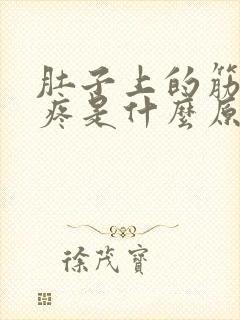 肚子上的筋
疼是什麼原
徐茂寶